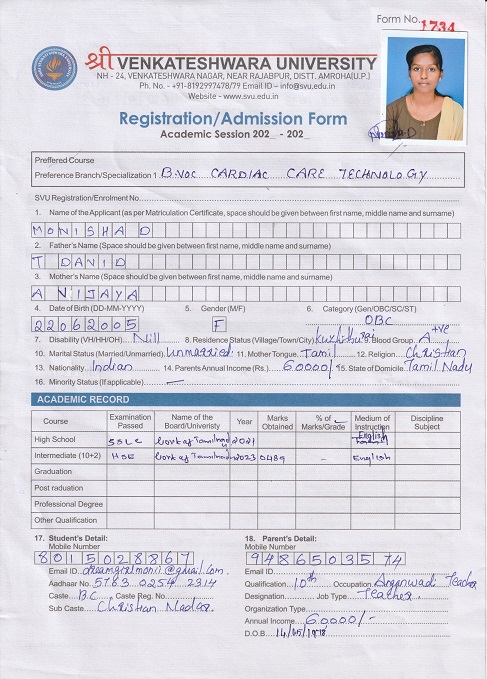 Form No. 1734
श्री VENKATESHWARA UNIVERSITY
NH - 24, VENKATESHWARA NAGAR, NEAR RAJABPUR, DISTT. AMROHA(U.P.)
Ph. No. - +91-8192997478/79 Email ID – info@svu.edu.in
Website - www.svu.edu.in
Registration/Admission Form
Academic Session 202_ - 202_
Preffered Course
Preference Branch/Specialization 1 B.VOC CARDIAC CARE TECHNOLOGY
SVU Registration/Enrolment No.
1. Name of the Applicant (as per Matriculation Certificate, space should be given between first name, middle name and surname)
MONISHA D
2. Father's Name (Space should be given between first name, middle name and surname)
T DAVID
3. Mother's Name (Space should be given between first name, middle name and surname)
A NIJAYA
4. Date of Birth (DD-MM-YYYY) 5. Gender (M/F) 6. Category (Gen/OBC/SC/ST)
22062005 F OBC
7. Disability (VH/HH/OH). Nill 8. Residence Status (Village/Town/City) 9. Blood Group. A+ve
10. Marital Status (Married/Unmarried). Unmarried. 11. Mother Tongue. Tamil 12. Religion. Christian
13. Nationality. Indian 14. Parents Annual Income (Rs.) 60000/ 15. State of Domicile. Tamil Nadu
16. Minority Status (If applicable). —
ACADEMIC RECORD
Course Examination Passed Name of the Board/Univeristy Year Marks Obtained % of Marks/Grade Medium of Instruction Discipline Subject
High School SSLC Govt of Tamilnadu 2021 English
Intermediate (10+2) HSE Govt of Tamilnadu 2023 0489 - English
Graduation
Post raduation
Professional Degree
Other Qualification
17. Student's Detail: 18. Parent's Detail:
Mobile Number Mobile Number
8015028867 9486503574
Email ID. dreamgirlmonii@gmail.com Email ID.
Aadhaar No. 5763 0254 2314 Qualification. 10th Occupation. Anganwadi Teacher
Caste. B.C Caste Reg. No. Designation. Job Type. Teacher
Sub Caste. Christian Nadar. Organization Type.
Annual Income. 60000/-
D.O.B. 14/05/1978